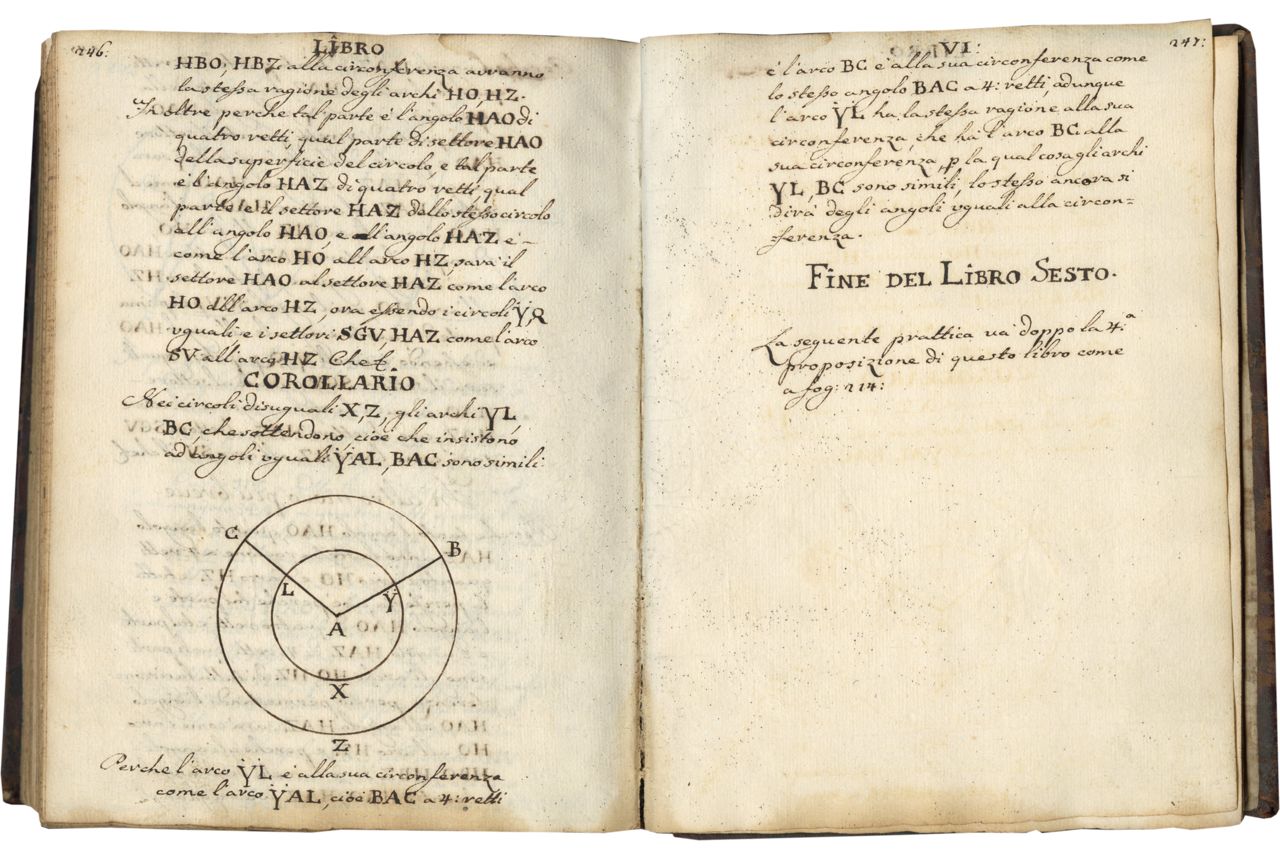 246:
LIBRO
HBO, HBZ alla circonferenza avranno
la stessa ragione degli archi HO, HZ.
Inoltre perche tal parte è l'angolo HAO di
quatro retti, qual parte di settore HAO
della superficie del circolo, e tal parte
è l'angolo HAZ di quatro retti qual
parte e il settore HAZ dello stesso circolo
all'angolo HAO, e all'angolo HAZ è-
come l'arco HO all'arco HZ, sara il
settore HAO al settore HAZ come l'arco
HO all'arco HZ, ora essendo i circoli Y, Q
vguali e i settori SGV, HAZ come l'arco
SV all'arco HZ Che
COROLLARIO
Nei circoli disuguali X, Z, gli archi YL
BC, che sottendono, cioè che insistono
ad angoli vguali YAL, BAC sono simili:
C
B
L
Y
A
X
Z
Perche l'arco YL è alla sua circonferenza
come l'arco YAL, cioè BAC a 4: retti
VI:
247:
è l'arco BC è alla sua circonferenza come
lo stesso angolo BAC a 4: retti, adunque
l'arco YL ha la stessa ragione alla sua
circonferenza, che ha l'arco BC alla
sua circonferenza, p la qual cosa gli archi
YL, BC sono simili, lo stesso ancora si
dirà degli angoli vguali alla circon=
ferenza.
FINE DEL LIBRO SESTO.
La seguente prattica và doppo la 4:a
proposizione di questo libro come
a fog: 214: